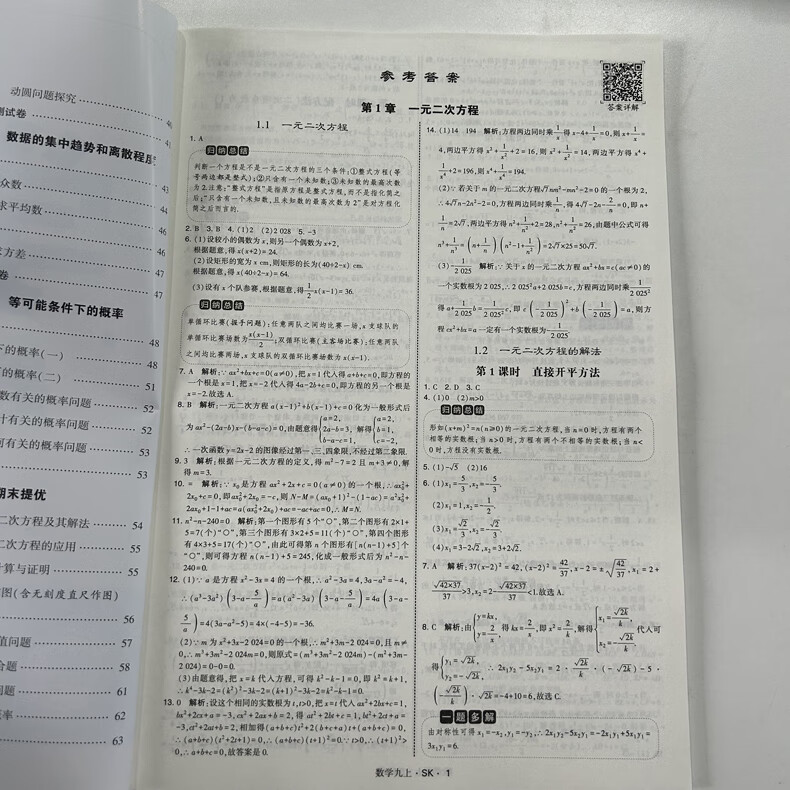 动圆问题探究
测试卷
数据的集中趋势和离散程度
众数
43
求平均数
44
46
方差
47
卷
47
等可能条件下的概率
48
下的概率(一)
48
下的概率(二)
51
数有关的概率问题
52
计有关的概率问题
52
何有关的概率问题
53
53
期末提优
二次方程及其解法
54
二次方程的应用
55
计算与证明
55
图(含无刻度直尺作图)
56
值问题
57
合题
58
问题
61
率
62
63
参考答案
答案详解
第1章 一元二次方程
1.1 一元二次方程
1. A
归纳总结
判断一个方程是不是一元二次方程的三个条件:①整式方程(等
号两边都是整式);②只含有一个未知数;③未知数的最高次数
为2.注意:“整式方程”是指原方程是整式方程,而不是指化简之
后;“只含有一个未知数,且未知数的最高次数为2”是对方程化
简之后而言的.
2. B 3. B 4. (1)2 (2)2 028 5. -3
6. (1)设较小的偶数为x,则另一个偶数为x+2,
根据题意,得x(x+2)=24.
(2)设矩形的宽为x cm,则矩形的长为(40÷2-x) cm.
根据题意,得x(40÷2-x)=64.
(3)设有x个队参赛,根据题意,得1/2x(x-1)=36.
归纳总结
单循环比赛(握手问题):任意两队之间均比赛一场,x支球队的
单循环比赛场数为x(x-1)/2;双循环比赛(主客场比赛):任意两队
之间均比赛两场,x支球队的双循环比赛场数为x(x-1).
7. A 解析:∵ax²+bx+c=0(a≠0),把x=1代入得a+b+c=0,即方程的
一个根是x=1,把x=-2代入得4a-2b+c=0,即方程的另一个根是
x=-2.故选A.
8. B 解析:一元二次方程a(x-1)²+b(x-1)+c=0化为一般形式后
为ax²-(2a-b)x-(b-a-c)=0,由题意得{a=2, 2a-b=3, b-a-c=1, 解得{a=2, b=1, c=-2,
∴一次函数y=2x-2的图像经过第一、三、四象限,不经过第二象限.
9. 3 解析:根据一元二次方程的定义,得m²-7=2且m+3≠0,解
得m=3.
10. = 解析:∵x₀是方程ax²+2x+c=0(a≠0)的一个根,∴ax₀²+
2x₀+c=0,即ax₀²+2x₀=-c,则N-M=(ax₀+1)²-(1-ac)=a²x₀²+
2ax₀+1-1+ac=a(ax₀²+2x₀)+ac=-ac+ac=0,∴M=N.
11. n²-n-240=0 解析:第一个图形有5个“○”,第二个图形有2×1+
5=7(个)“○”,第三个图形有3×2+5=11(个)“○”,第四个图形
有4×3+5=17(个)“○”,由此可得第n个图形有[n(n-1)+5]个
“○”,则可得方程n(n-1)+5=245,化成一般形式后为n²-n-
240=0.
12. (1)∵a是方程x²-3x=4的一个根,∴a²-3a=4,3a-a²=-4,
∴(a³-3a²)(3-a-5/a)=a(a²-3a)(3-a-5/a)=4a(3-a-
5/a)=4(3a-a²-5)=4×(-4-5)=-36.
(2)∵m为x²+3x-2 024=0的一个根,∴m²+3m-2 024=0,且m≠
0,∴m³+3m²-2 024m=0,则原式=(m³+3m²-2 024m)-(m²+3m-
2 024)=0-0=0.
(3)由题意得,把x=k代入方程,可得k²-k-1=0,即k²=k+1,
∴k⁴-3k-2=(k²)²-3k-2=(k+1)²-3k-2=k²-k-1=0.
13. 0 解析:设这个相同的实数根为t,t>0,把x=t代入ax²+2bx+c=1,
bx²+2cx+a=-3,cx²+2ax+b=2,得at²+2bt+c=1,bt²+2ct+a=
-3,ct²+2at+b=2,相加得(a+b+c)t²+2(b+c+a)t+(a+b+c)=0,
∴(a+b+c)(t²+2t+1)=0,∴(a+b+c)(t+1)²=0.∵t>0,∴(t+1)²>
0,∴a+b+c=0,故答案是0.
14. (1)14 194 解析:方程两边同时乘1/x得x-4+1/x=0,则x+1/x=
4,两边平方得x²+1/x²+2=16,则x²+1/x²=14,两边平方得x⁴+
1/x⁴+2=196,则x⁴+1/x⁴=194.
(2)∵若关于m的一元二次方程√7nm²-mn²-2=0的一个根为2,
∴4√7n-2n²-2=0,方程两边同时乘1/n,得4√7-2n-2/n=0,即n+
1/n=2√7,两边平方得n²+1/n²+2=28,n²+1/n²=26,由题中公式可得
n³+1/n³=(n+1/n)(n²-1+1/n²)=2√7×25=50√7.
(3)-1/2 025 解析:∵关于x的一元二次方程ax²+bx=c(ac≠0)的
一个实数根为2 025,∴2 025²a+2 025b=c,方程两边同时乘1/2 025²
得a+1/2 025b=1/2 025²c,即c(-1/2 025)²+b(-1/2 025)=a,则方
程cx²+bx=a一定有一个实数根为-1/2 025.
1.2 一元二次方程的解法
第1课时 直接开平方法
1. C 2. D 3. C
4. (1)0 (2)m>0
归纳总结
形如(x+m)²=n(n≥0)的一元二次方程,当n=0时,方程有两个
相等的实数根;当n>0时,方程有两个不相等的实数根;当n<
0时,方程没有实数根.
5. (1)-√5 (2)16
6. (1)x₁=5/3,x₂=-5/3.
(2)x₁=1,x₂=-1/2.
(3)x₁=√2/3,x₂=-√2/3.
(4)x₁=3-2√2,x₂=3+2√2.
7. A 解析:37(x-2)²=42,(x-2)²=42/37,x-2=±√(42/37),x₁=2+
√(42×37)/37>3,x₂=2-√(42×37)/37<1.故选A.
8. C 解析:由{y=kx, y=2/x, 得kx=2/x,即x²=2/k,解得{x₁=√(2k)/k, x₂=-√(2k)/k 代入可
得{y₁=√(2k), y₂=-√(2k), ∴2x₁y₂-5x₂y₁=2·√(2k)/k·(-√(2k))-5·
(-√(2k)/k)·√(2k)=-4+10=6,故选C.
一题多解
由对称性可得x₁=-x₂,y₁=-y₂,∴2x₁y₂-5x₂y₁=-2x₁y₁+5x₁y₁=
3x₁y₁=6.
数学九上·SK·1